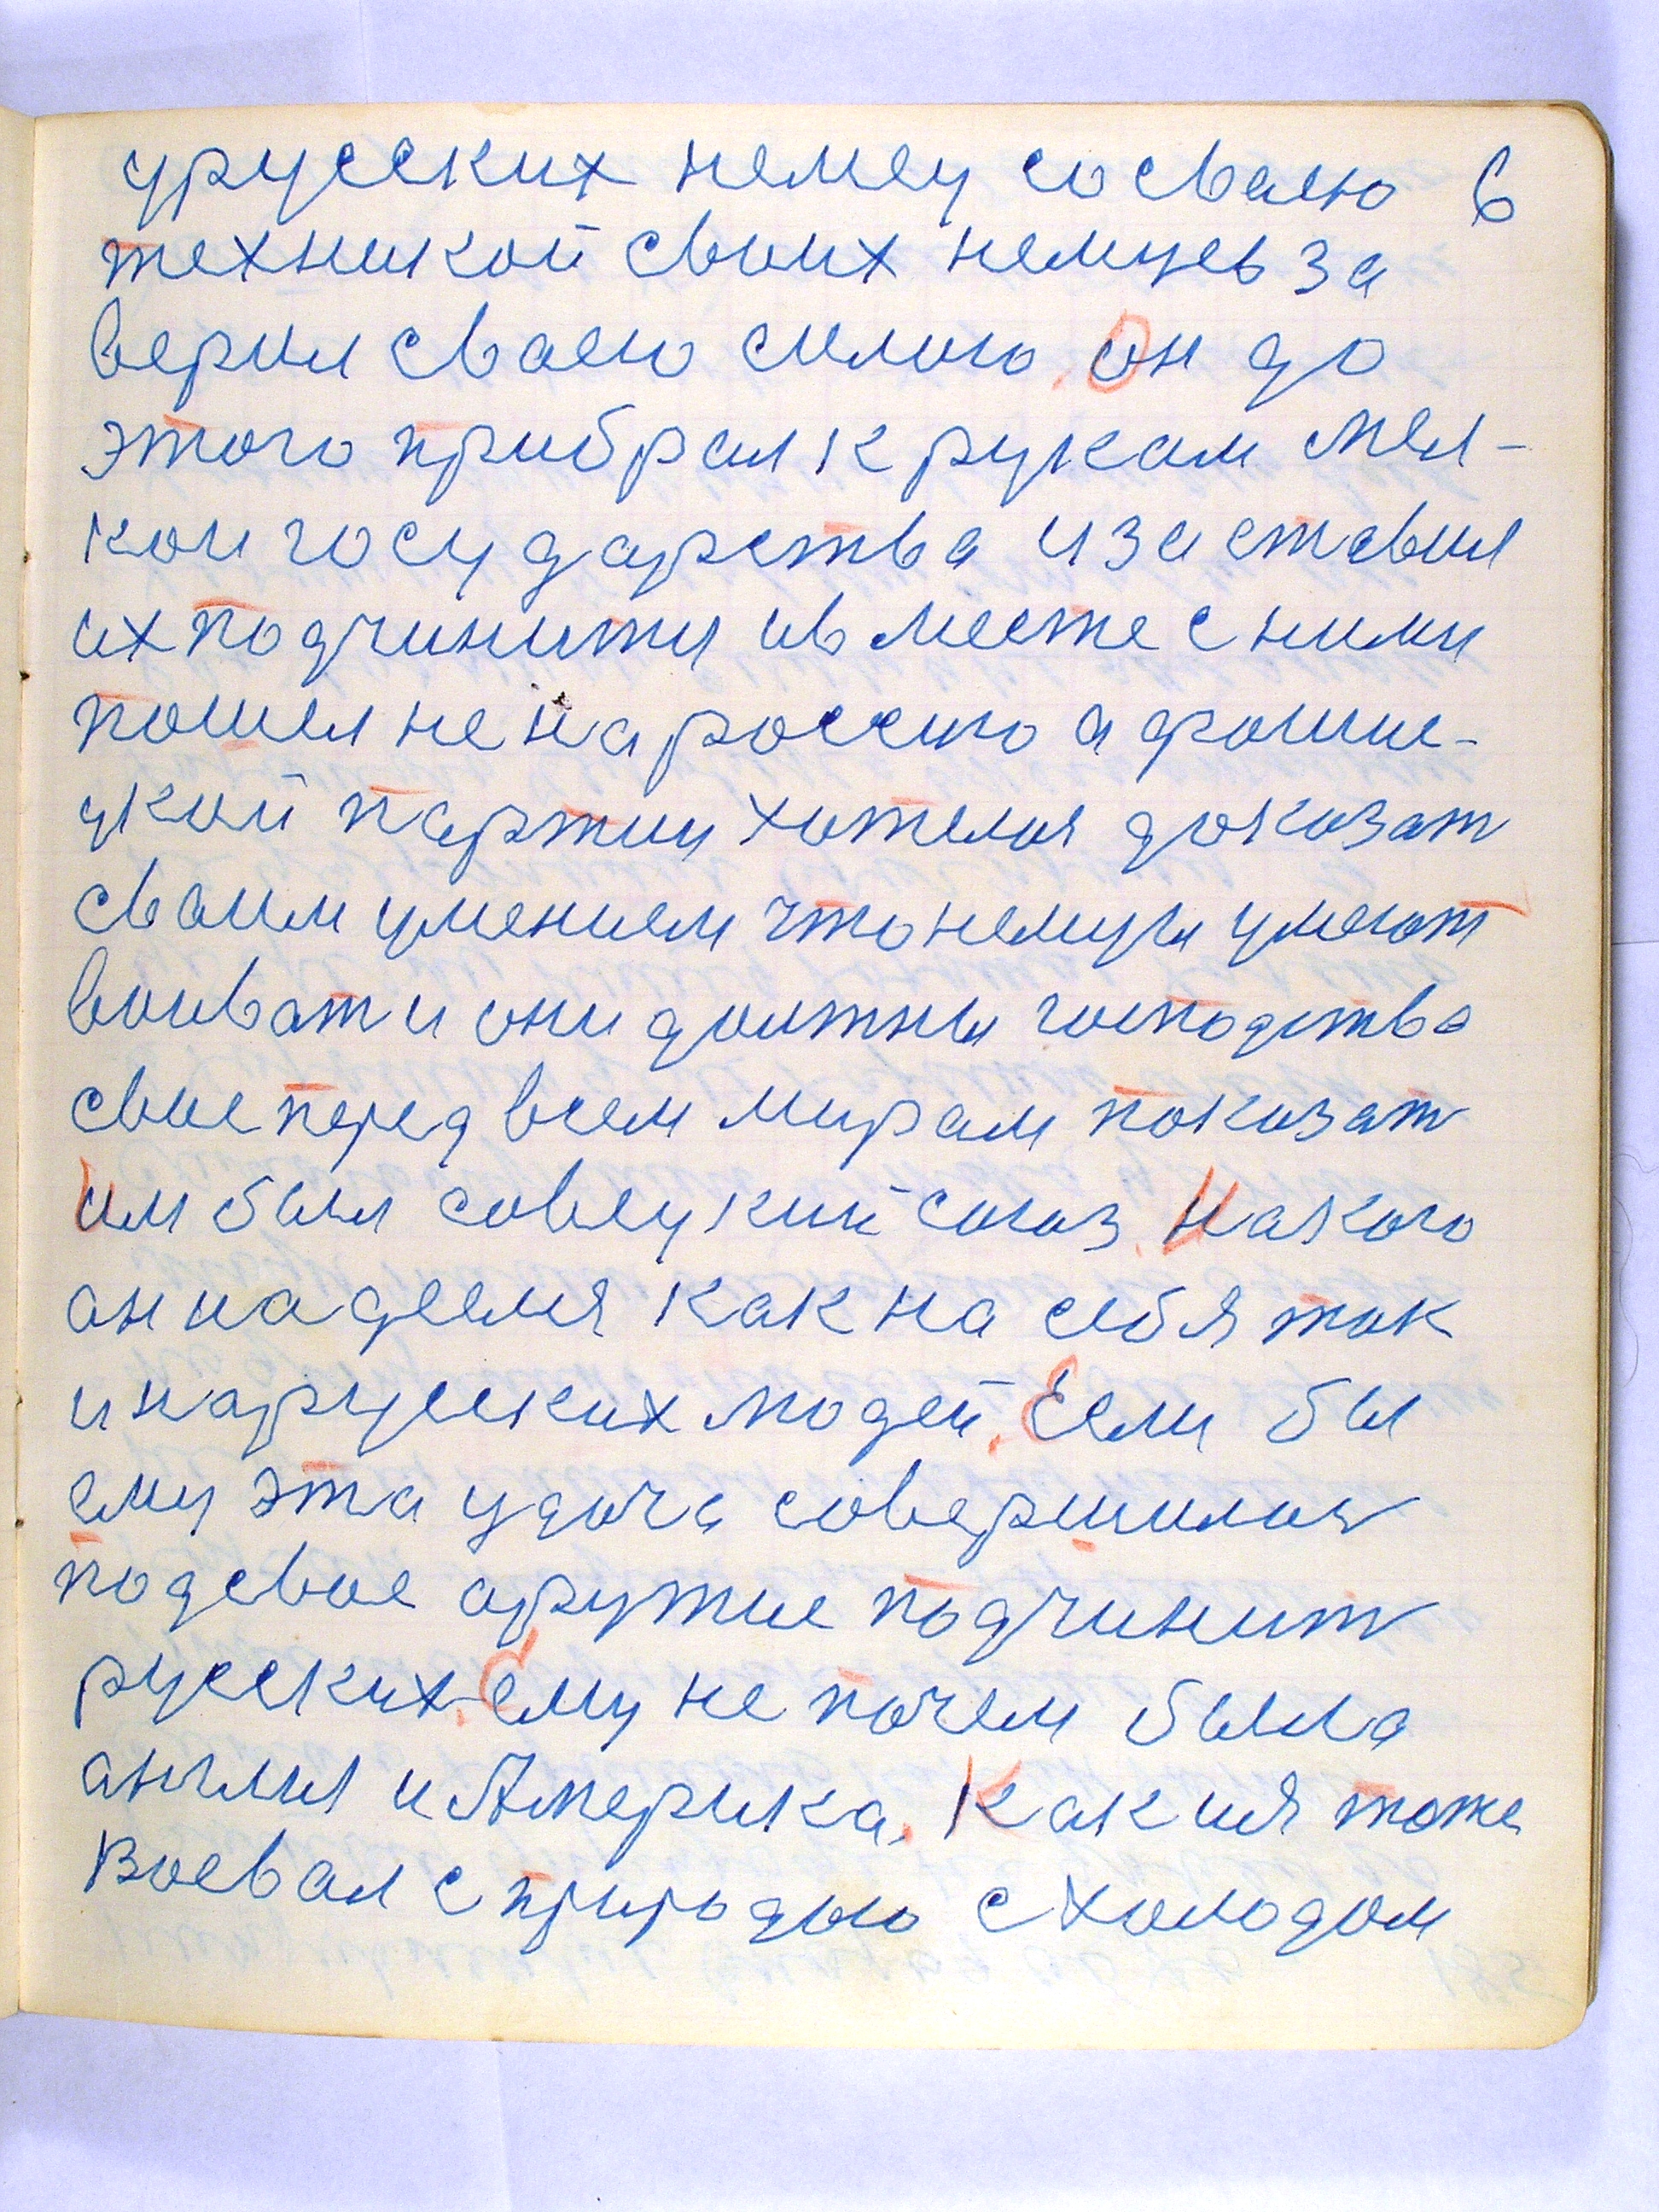 урусских немец со сваею 6
техникой своих немцев за
верил сваею силою. Он до
этого прибрал к рукам мел-
кои государства и заставил
их подчинити и в месте с ними
пошел не на россию а фошис-
цкой партии хотелся доказат
сваим умением что немцы умеют
воиват и они должны господства
свое перед всем мирам показат
Им был совецкий союз. На кого
он надеелся как на себя так
и на русских людей. Если бы
ему эта удача совершилося
под свое аружие подчинит
русских. Ему не почем была
англия и Америка. Как и я тоже
Воевал с природою с холодом